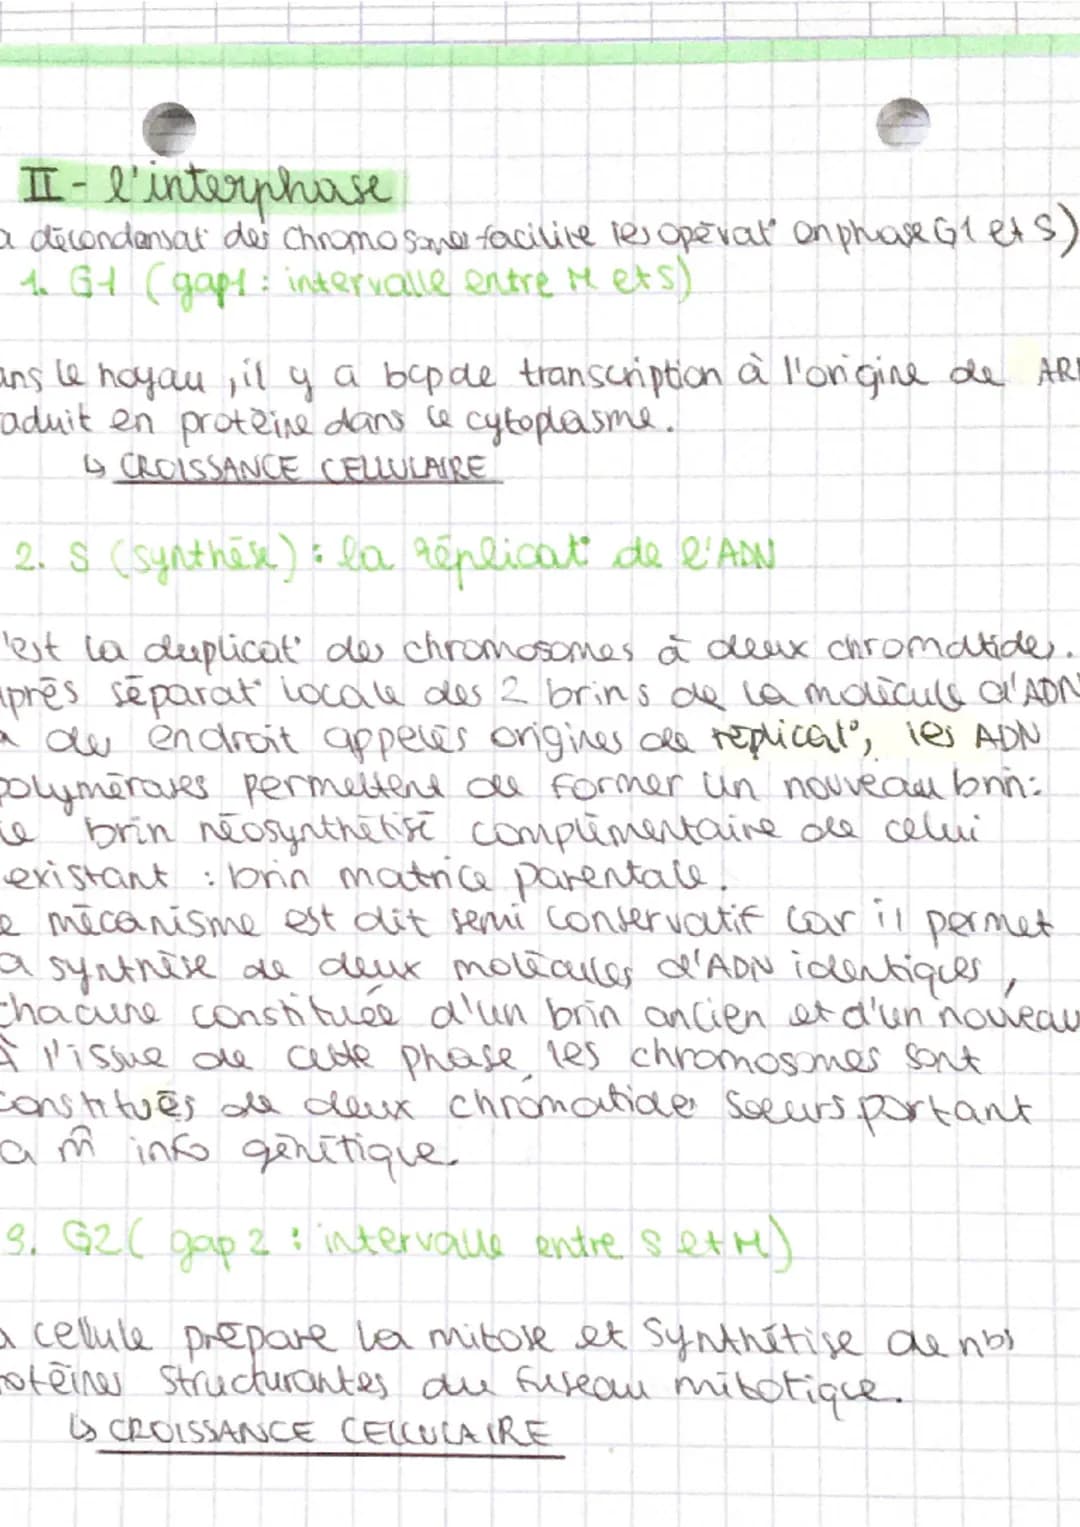 II - l'interphase
a décondensat° des chromosomes facilite les opérat° en phase G1 et S)
1. G1 (gap1 : intervalle entre M et S)
ans le noyau, il y a bcp de transcription à l'origine de AR
aduit en protéine dans le cytoplasme.
↳ CROISSANCE CELLULAIRE
2. S (synthèse) : la réplicat° de l'ADN
'est la duplicat° des chromosomes à deux chromatides.
après séparat° locale des 2 brins de la molécule d'ADN
a des endroit appelés origines de réplicat°, les ADN
polymérases permettent de former un nouveau brin:
le brin néosynthétisé complémentaire de celui
existant : brin matrice parentale.
e mécanisme est dit semi conservatif car il permet
a synthèse de deux molécules d'ADN identiques,
chacune constituée d'un brin ancien et d'un nouveau
À l'issue de cette phase, les chromosomes sont
constitués de deux chromatides soeurs portant
a m̂ info génétique.
3. G2 ( gap 2 : intervalle entre S et M)
a cellule prépare la mitose et synthétise de nbs
rotéines structurantes du fuseau mitotique.
↳ CROISSANCE CELLULAIRE